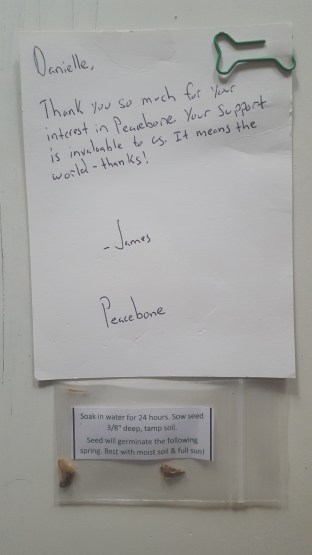 Danielle,
Thank you so much for your
interest in Peacebone. Your support
is invaluable to us. It means the
world - thanks!
- James
Peacebone
Soak in water for 24 hours. Sow seed
3/8" deep, tamp soil.
Seed will germinate the following
spring. Best with moist soil & full sun!